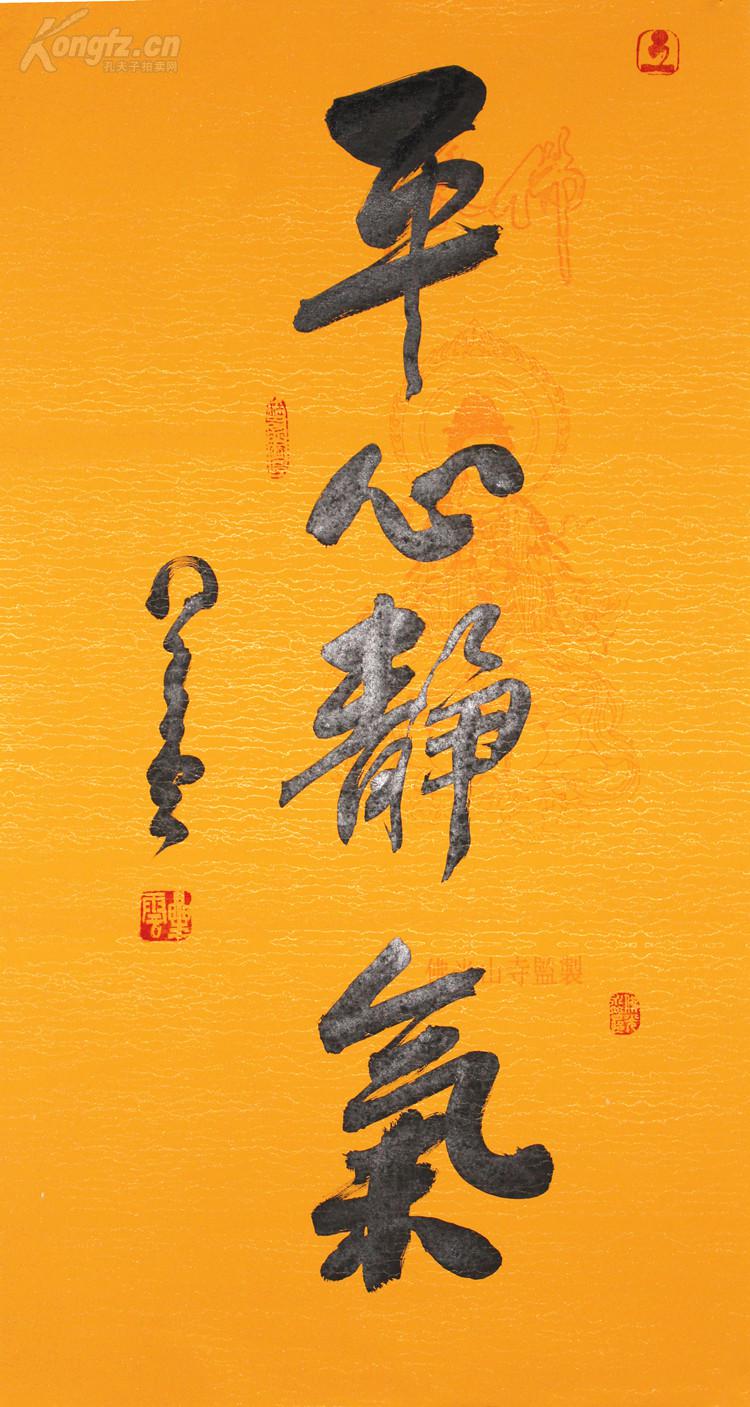 Kongfz.cn
孔夫子拍卖网
佛
平心靜氣
星雲
佛光山寺監製